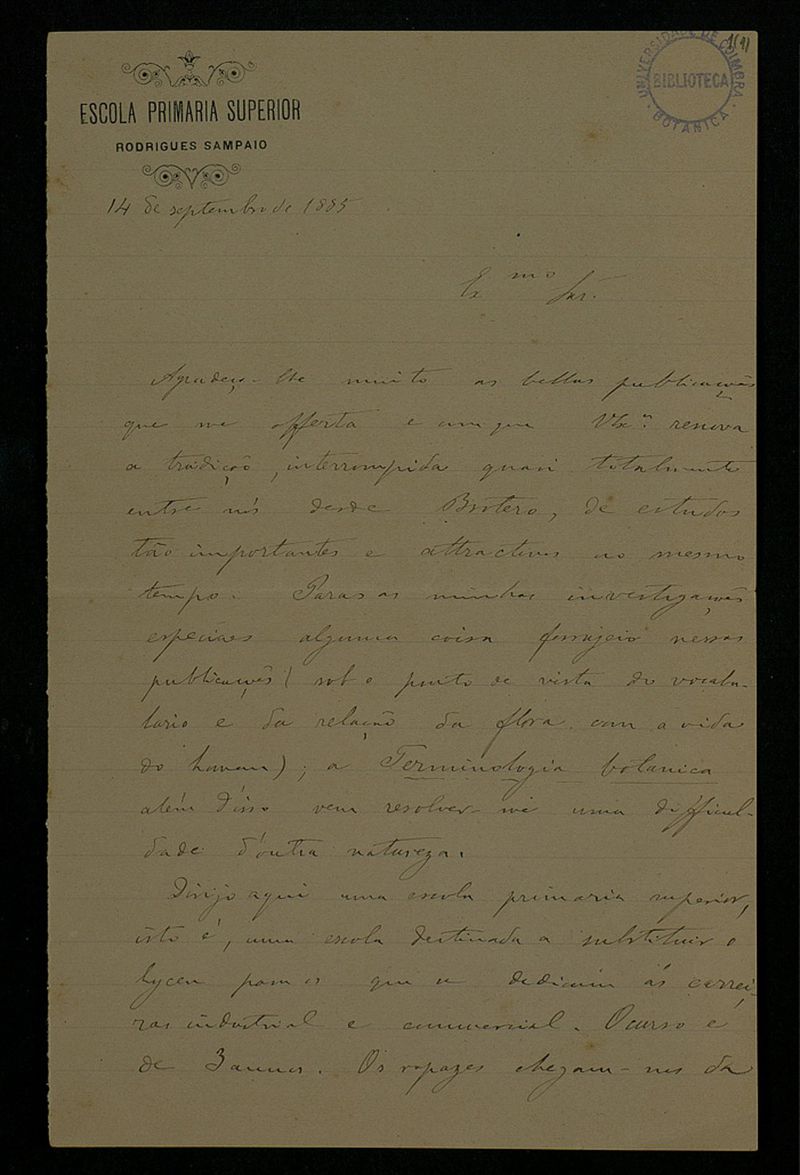 1(1)
UNIVERSIDADE DE COIMBRA
BIBLIOTECA
BOTANICA
ESCOLA PRIMARIA SUPERIOR
RODRIGUES SAMPAIO
14 de septembro de 1885
Exmo Snr.
Agradeço-lhe muito as bellas publicações
que me offerta e em que VExª renova
a tradição, interrompida quasi totalmente
entre nós desde Brotero, de estudos
tão importantes e attractivos ao mesmo
tempo. Para as minhas investigações
especiaes alguma coisa forrajeio nessas
publicações (sob o ponto de vista do vocabu-
lario e da relação da flora com a vida
do homem); a Terminologia botanica
além d'isso vem resolver-me uma difficul-
dade d'outra natureza.
Dirijo aqui uma escola primaria superior,
isto é, uma escola destinada a substituir o
lyceu para os que se dedicam ás carrei-
ras industrial e commercial. O curso é
de 3 annos. Os rapazes chegam-nos da